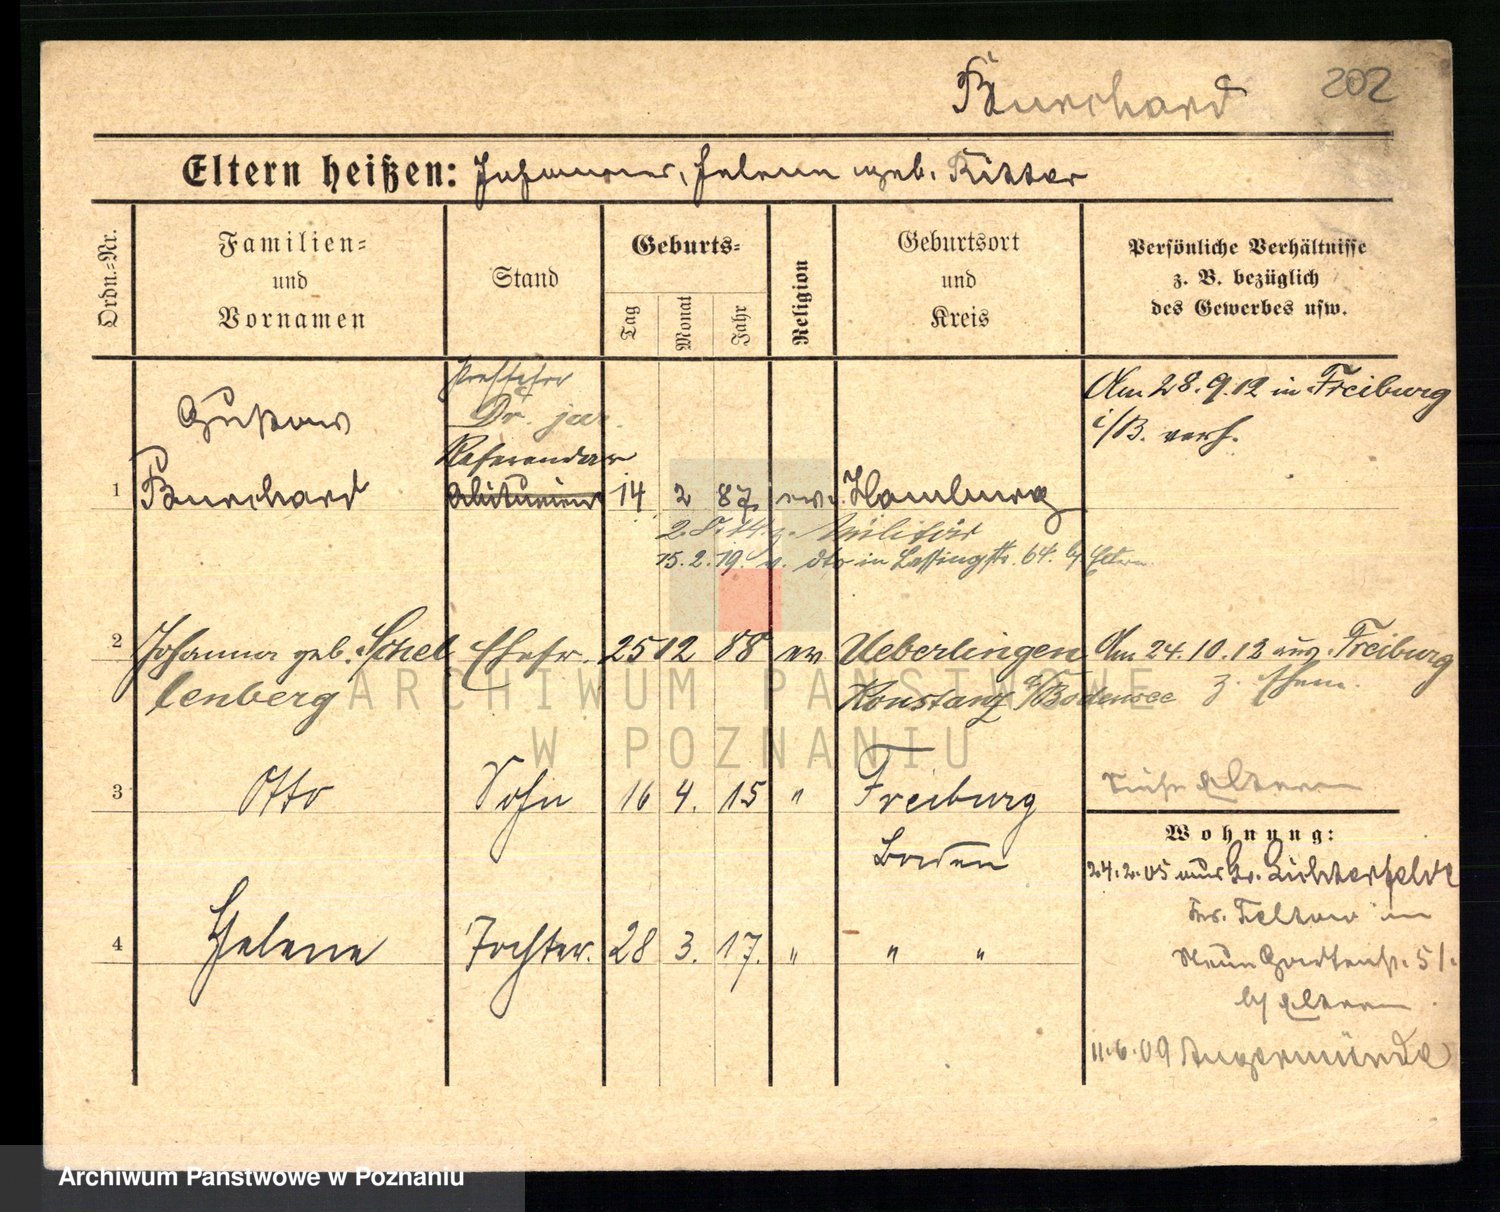 202
Burchard
Eltern heißen: Johannes, Helene geb. Ritter
Ordn.=Nr.
Familien= und Vornamen
Stand
Geburts=
Tag
Monat
Jahr
Religion
Geburtsort und Kreis
Persönliche Verhältnisse z. B. bezüglich des Gewerbes usw.
Dr. jur.
Referendar
1 Gustav Burchard Abiturient 14 2 87 ev. Hamburg
Am 28.9.12 in Freiburg
i/B. verh.
2.8.14 z. Militär
15.2.19. v. dto in Lessingstr. 64. b/ Eltern
2 Johanna geb. Schel Ehefr. 25 12 88 ev Ueberlingen Am 24.10.12 aus Freiburg
lenberg Konstanz a/Bodensee z. Ehem.
3 Otto Sohn 16 4. 15 " Freiburg
Baden
siehe Eltern
4 Helene Tochter. 28 3. 17. " " "
Wohnung:
24.2.05 aus Gr. Lichterfelde
Krs. Teltow in
Neue Gartenstr. 51.
b/ Eltern
11.6.09 Angermünde
ARCHIWUM PAŃSTWOWE
W POZNANIU
Archiwum Państwowe w Poznaniu